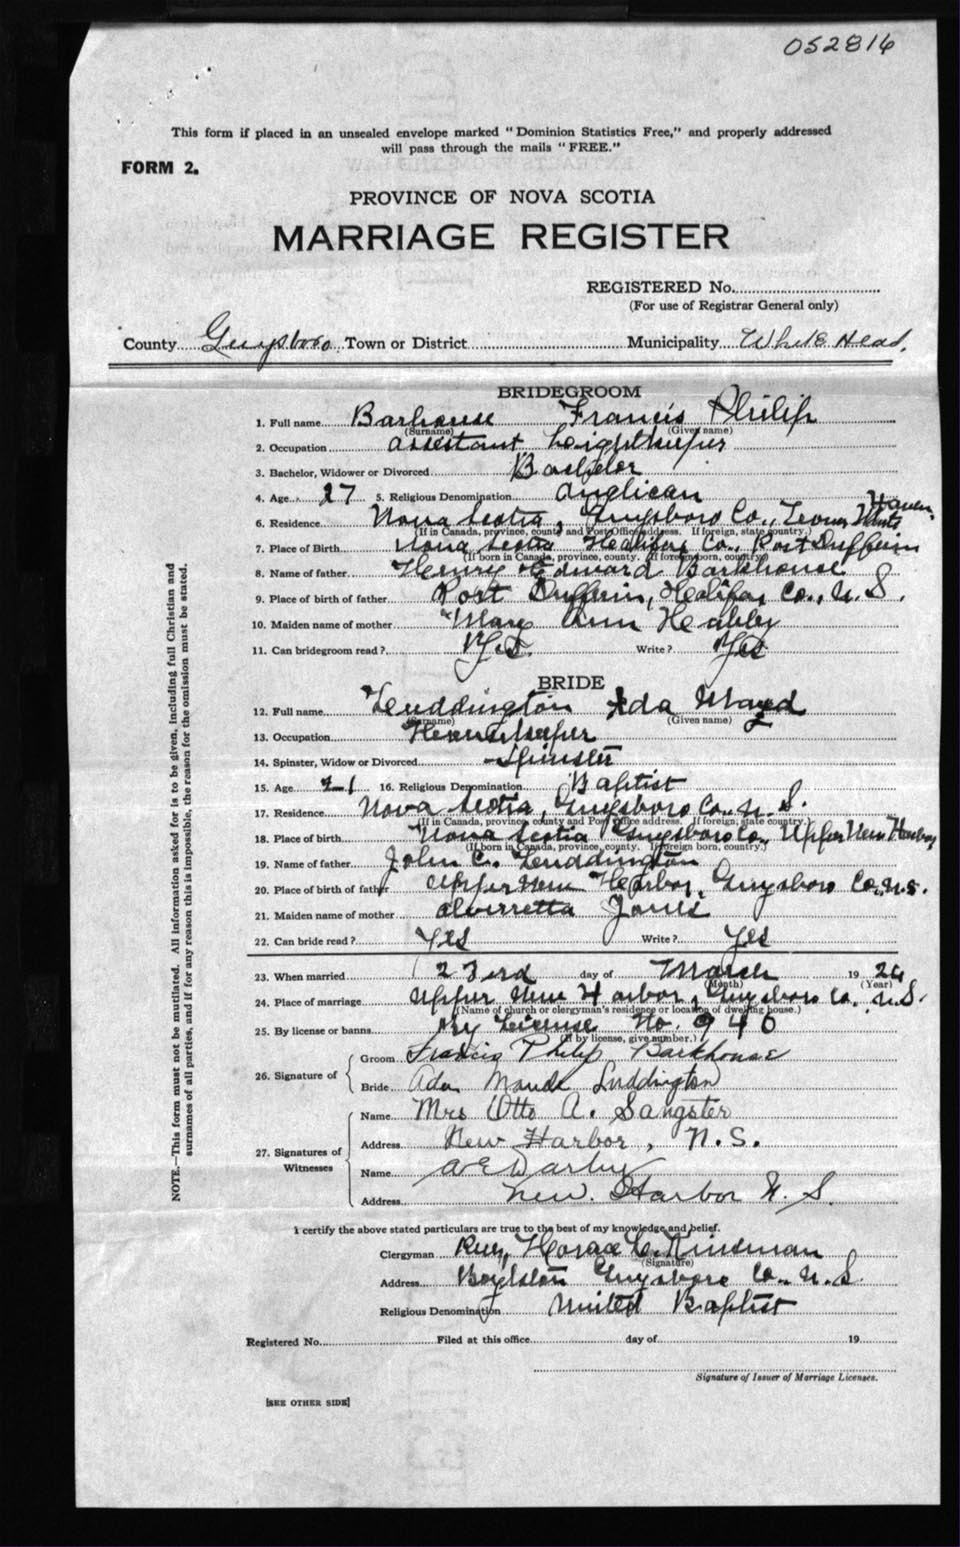 052816
This form if placed in an unsealed envelope marked "Dominion Statistics Free," and properly addressed
will pass through the mails "FREE."
FORM 2.
PROVINCE OF NOVA SCOTIA
MARRIAGE REGISTER
REGISTERED No.
(For use of Registrar General only)
County Guysboro Town or District Municipality White Head.
BRIDEGROOM
1. Full name Barhouse Francis Philip
(Surname) (Given name)
2. Occupation assestant Leightkeeper
3. Bachelor, Widower or Divorced Bachelor
4. Age 27 5. Religious Denomination Anglican
6. Residence Nova Scotia, Guysboro Co., Haven
(If in Canada, province, county and Post Office address. If foreign, state country.)
7. Place of Birth Nova Scotia Halifax Co., Port Dufferin
(If born in Canada, province, county. If foreign born, country.)
8. Name of father Henry Edward Barkhouse
9. Place of birth of father Port Dufferin, Halifax Co., N.S.
10. Maiden name of mother Mary Ann
11. Can bridegroom read? Yes. Write? Yes
BRIDE
12. Full name Luddington Ada Maud
(Surname) (Given name)
13. Occupation Housekeeper
14. Spinster, Widow or Divorced Spinster
15. Age 21 16. Religious Denomination Baptist
17. Residence Nova Scotia, Guysboro Co. N.S.
(If in Canada, province, county and Post Office address. If foreign, state country.)
18. Place of birth Nova Scotia Guysboro Co., Upper New Harbor
(If born in Canada, province, county. If foreign born, country.)
19. Name of father John C. Luddington
20. Place of birth of father Upper New Harbor, Guysboro Co., N.S.
21. Maiden name of mother Alverretta Jones
22. Can bride read? Yes Write? Yes
23. When married 23rd day of March 1926
(Month) (Year)
24. Place of marriage Upper New Harbor, Guysboro Co. N.S.
(Name of church or clergyman's residence or location of dwelling house.)
25. By license or banns By License No. 940
(If by license, give number.)
26. Signature of Groom Francis Philip Barkhouse
Bride Ada Maude Luddington
27. Signatures of Witnesses Name Mrs Otto A. Sangster
Address New Harbor, N.S.
Name A E Darby
Address New. Harbor N.S.
I certify the above stated particulars are true to the best of my knowledge and belief.
Clergyman Rev, Horace L. Kinsman
(Signature)
Address Boylston Guysboro Co. N.S.
Religious Denomination United Baptist
Registered No. Filed at this office day of 19
Signature of Issuer of Marriage Licenses.
[SEE OTHER SIDE]
NOTE.—This form must not be mutilated. All information asked for is to be given, including full Christian and
surnames of all parties, and if for any reason this is impossible, the reason for the omission must be stated.